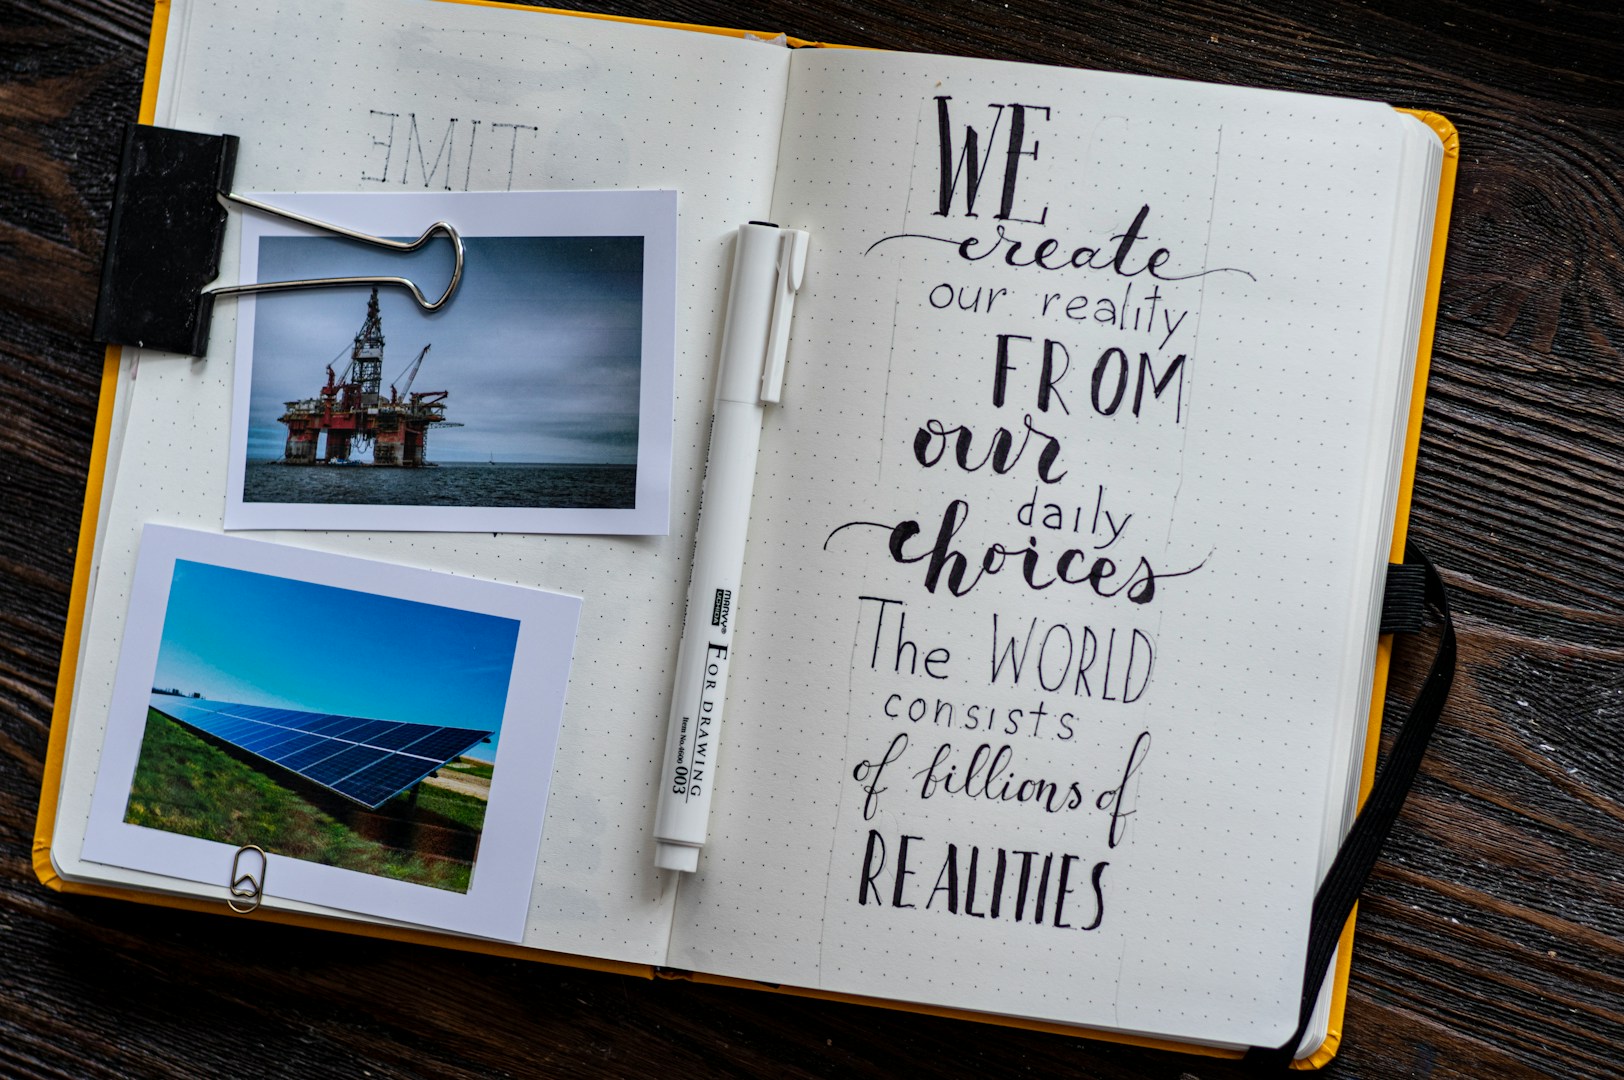 TIME
WE
create
our reality
FROM
our
daily
choices
The WORLD
consists
of billions of
REALITIES
MARVY
UCHIDA
FOR DRAWING
Item No.4600 003